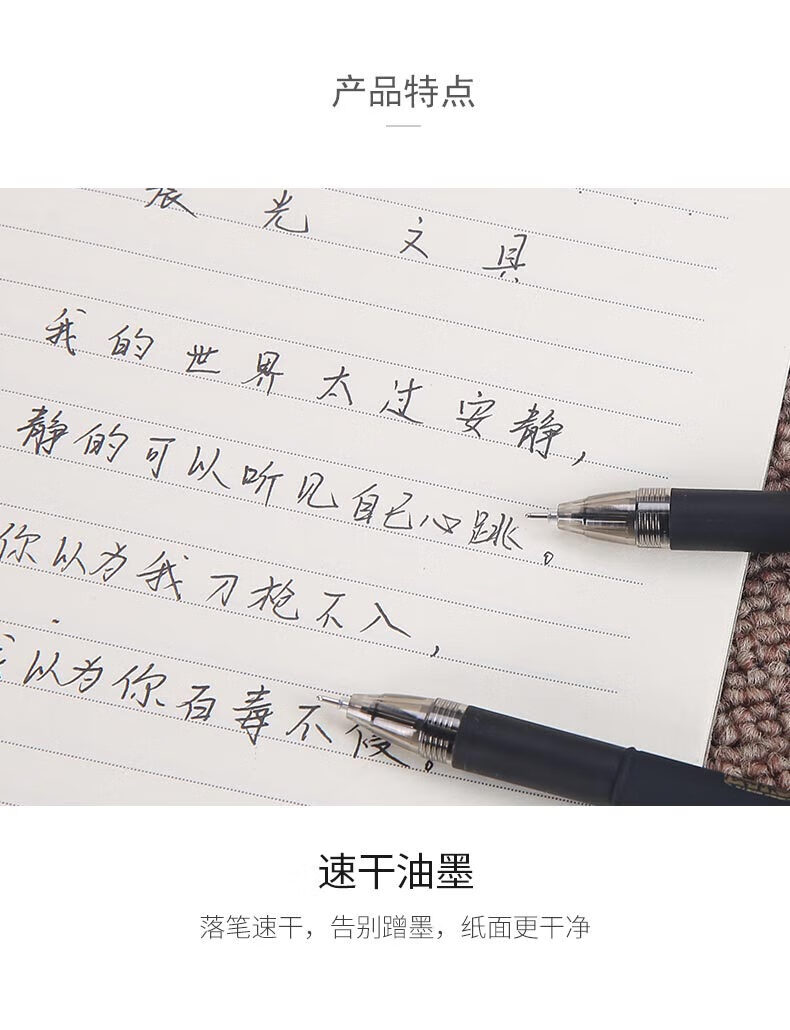 产品特点
晨光文具
我的世界太过安静，
静的可以听见自己心跳。
你以为我刀枪不入，
我以为你百毒不侵。
速干油墨
落笔速干，告别蹭墨，纸面更干净